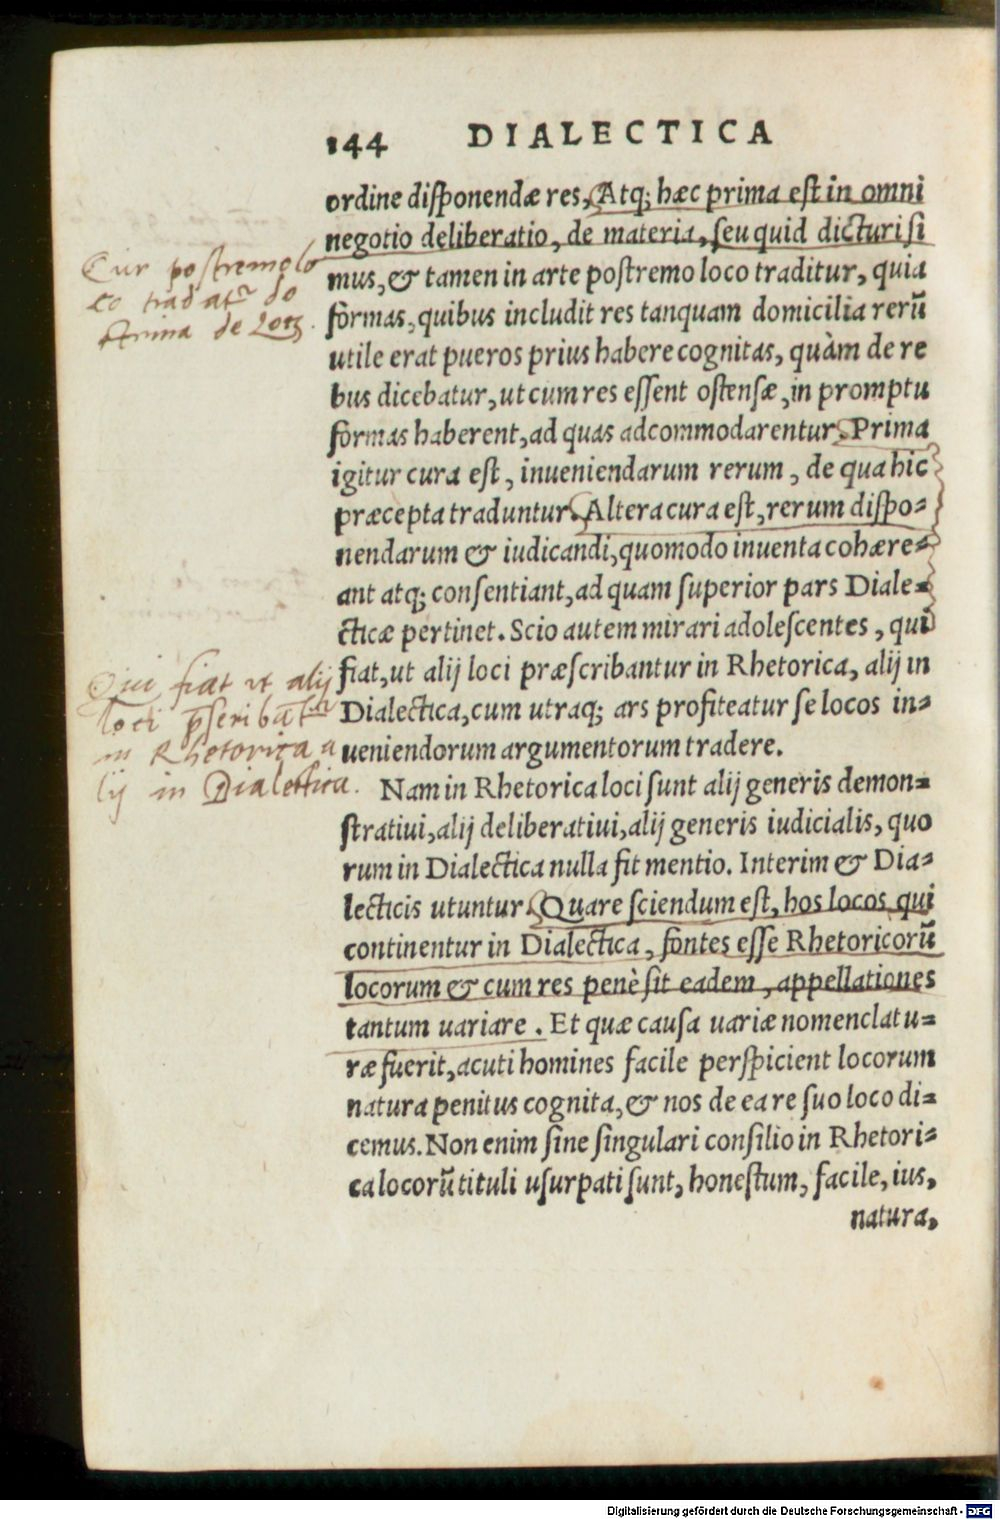 144 DIALECTICA
ordine disponendæ res, Atq; hæc prima est in omni
negotio deliberatio, de materia, seu quid dicturi si
mus, & tamen in arte postremo loco traditur, quia
formas, quibus includit res tanquam domicilia rerū
utile erat pueros prius habere cognitas, quàm de re
bus dicebatur, ut cum res essent ostensæ, in promptu
formas haberent, ad quas adcommodarentur. Prima
igitur cura est, inueniendarum rerum, de qua hic
præcepta traduntur. Altera cura est, rerum dispo=
nendarum & iudicandi, quomodo inuenta cohære=
ant atq; consentiant, ad quam superior pars Diale=
cticæ pertinet. Scio autem mirari adolescentes, qui
fiat, ut alij loci præscribantur in Rhetorica, alij in
Dialectica, cum utraq; ars profiteatur se locos in=
ueniendorum argumentorum tradere.
Nam in Rhetorica loci sunt alij generis demon=
stratiui, alij deliberatiui, alij generis iudicialis, quo
rum in Dialectica nulla fit mentio. Interim & Dia=
lecticis utuntur. Quare sciendum est, hos locos qui
continentur in Dialectica, fontes esse Rhetoricorū
locorum & cum res penè sit eadem, appellationes
tantum uariare. Et quæ causa uariæ nomenclatu=
ræ fuerit, acuti homines facile perspicient locorum
natura penitus cognita, & nos de ea re suo loco di=
cemus. Non enim sine singulari consilio in Rhetori=
ca locorū tituli usurpati sunt, honestum, facile, ius,
natura,
Cur postremo lo
co tradat᷑ do
ctrina de Locis.
Qui fiat vt alij
loci p̄scribāt᷑
in Rhetorica a
lij in Dialectica.
Digitalisierung gefördert durch die Deutsche Forschungsgemeinschaft - DFG